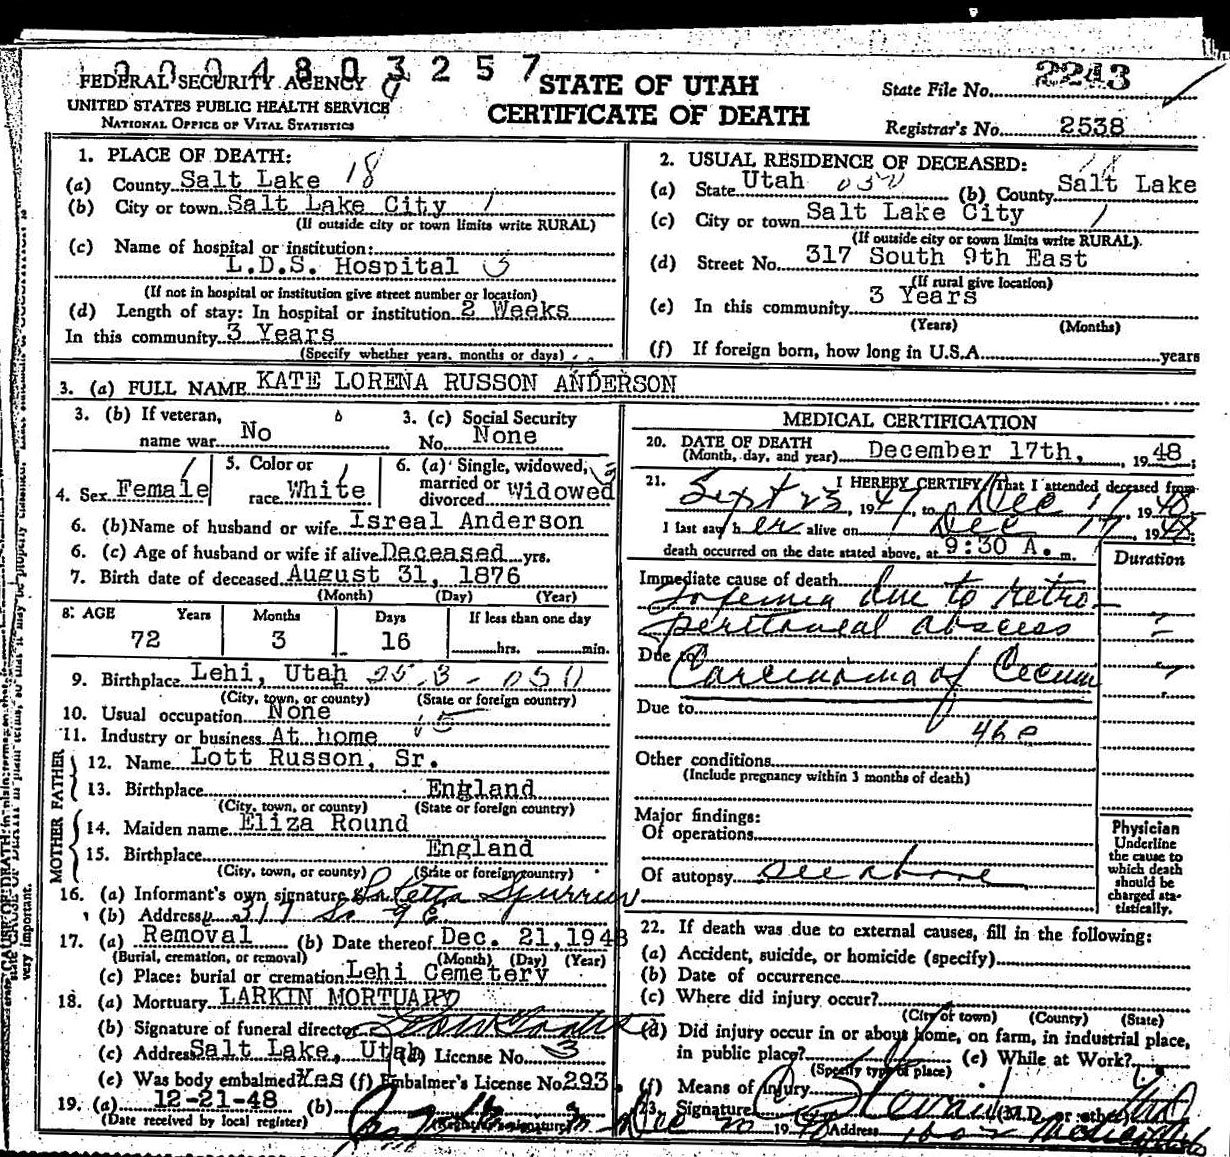 0 0 0 4 8 0 3 2 5 7
FEDERAL SECURITY AGENCY
UNITED STATES PUBLIC HEALTH SERVICE
NATIONAL OFFICE OF VITAL STATISTICS
STATE OF UTAH
CERTIFICATE OF DEATH
State File No. 2243
Registrar's No. 2538
1. PLACE OF DEATH:
(a) County Salt Lake 18
(b) City or town Salt Lake City 1
(If outside city or town limits write RURAL)
(c) Name of hospital or institution:
L.D.S. Hospital
(If not in hospital or institution give street number or location)
(d) Length of stay: In hospital or institution 2 Weeks
In this community 3 Years
(Specify whether years, months or days)
2. USUAL RESIDENCE OF DECEASED:
(a) State Utah 050 (b) County Salt Lake
(c) City or town Salt Lake City 1
(If outside city or town limits write RURAL).
(d) Street No. 317 South 9th East
(If rural give location)
(e) In this community 3 Years
(Years) (Months)
(f) If foreign born, how long in U.S.A. years
3. (a) FULL NAME KATE LORENA RUSSON ANDERSON
3. (b) If veteran,
name war No
3. (c) Social Security
No. None
4. Sex Female
5. Color or
race White
6. (a) Single, widowed,
married or
divorced Widowed
6. (b) Name of husband or wife Isreal Anderson
6. (c) Age of husband or wife if alive Deceased yrs.
7. Birth date of deceased August 31, 1876
(Month) (Day) (Year)
8. AGE Years Months Days If less than one day
72 3 16 hrs. min.
9. Birthplace Lehi, Utah 25 3 - 050
(City, town, or county) (State or foreign country)
10. Usual occupation None
11. Industry or business At home
FATHER
12. Name Lott Russon, Sr.
13. Birthplace England
(City, town, or county) (State or foreign country)
MOTHER
14. Maiden name Eliza Round
15. Birthplace England
(City, town, or county) (State or foreign country)
16. (a) Informant's own signature
(b) Address 317 So 9 E
17. (a) Removal (b) Date thereof Dec. 21, 1948
(Burial, cremation, or removal) (Month) (Day) (Year)
(c) Place: burial or cremation Lehi Cemetery
18. (a) Mortuary LARKIN MORTUARY
(b) Signature of funeral director
(c) Address Salt Lake, Utah (d) License No. 3
(e) Was body embalmed Yes (f) Embalmer's License No. 293
19. (a) 12-21-48 (b)
(Date received by local register) (Registrar's signature)
MEDICAL CERTIFICATION
20. DATE OF DEATH
(Month, day, and year) December 17th, 1948;
21. I HEREBY CERTIFY, That I attended deceased from
Sept 23, 1947, to Dec 17, 1948.
I last saw her alive on Dec 17, 1948;
death occurred on the date stated above, at 9:30 A. m.
Duration
Immediate cause of death
Toxemia due to retro-
peritoneal abscess
Due to
Carcinoma of Cecum
Due to
46e
Other conditions
(Include pregnancy within 3 months of death)
Major findings:
Of operations
Of autopsy see above
Physician
Underline
the cause to
which death
should be
charged sta-
tistically.
22. If death was due to external causes, fill in the following:
(a) Accident, suicide, or homicide (specify)
(b) Date of occurrence
(c) Where did injury occur?
(City or town) (County) (State)
(d) Did injury occur in or about home, on farm, in industrial place,
in public place? (e) While at Work?
(Specify type of place)
(f) Means of Injury
23. Signature (M.D. or other)
Dec 20 1948 Address
very important.